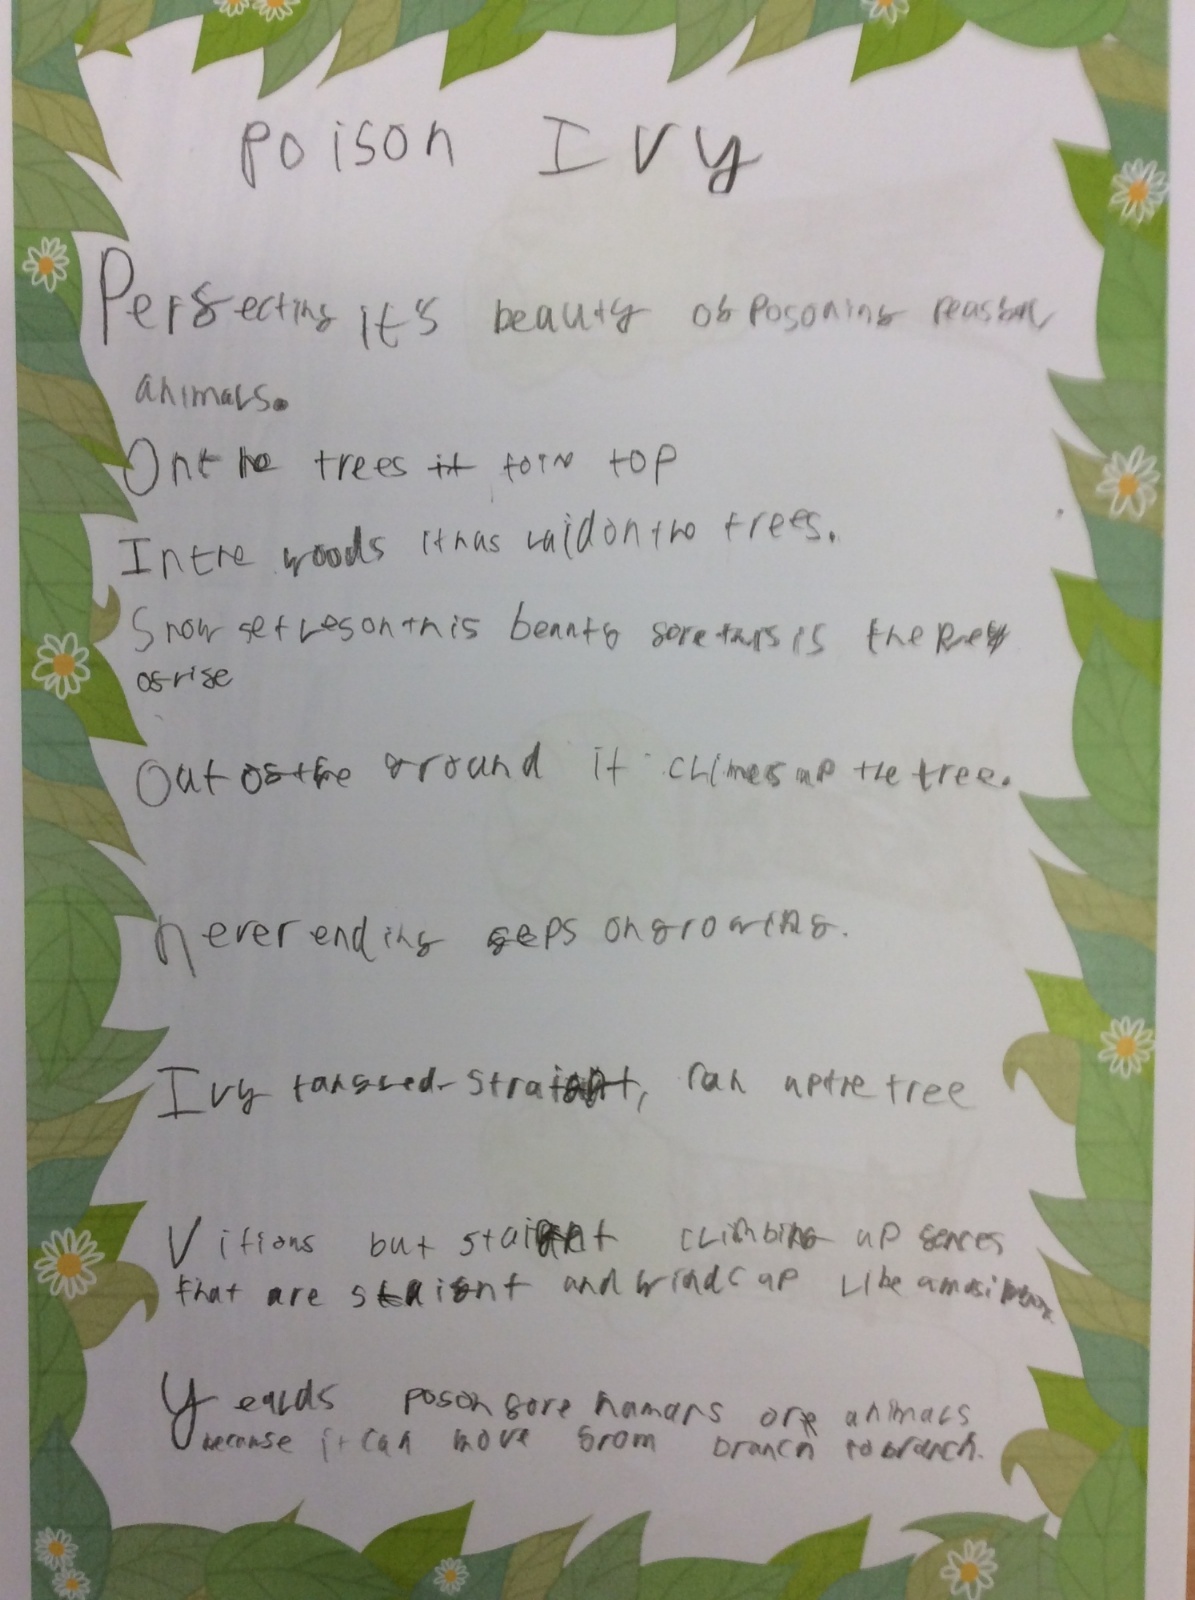 Poison Ivy
Perfecting it's beauty of Posoning
animals.
On the trees it top
In the woods it has laid on the trees.
Snow setles on this beauty fore this is the
of rise
Out of the ground it climes up the tree.
never ending on growing.
Ivy tangled straight, ran up the tree
Vitions but staight climbing up fences
that are staight and winds up like a
Yealds poson fore humans ore animals
because it can move from branch to branch.